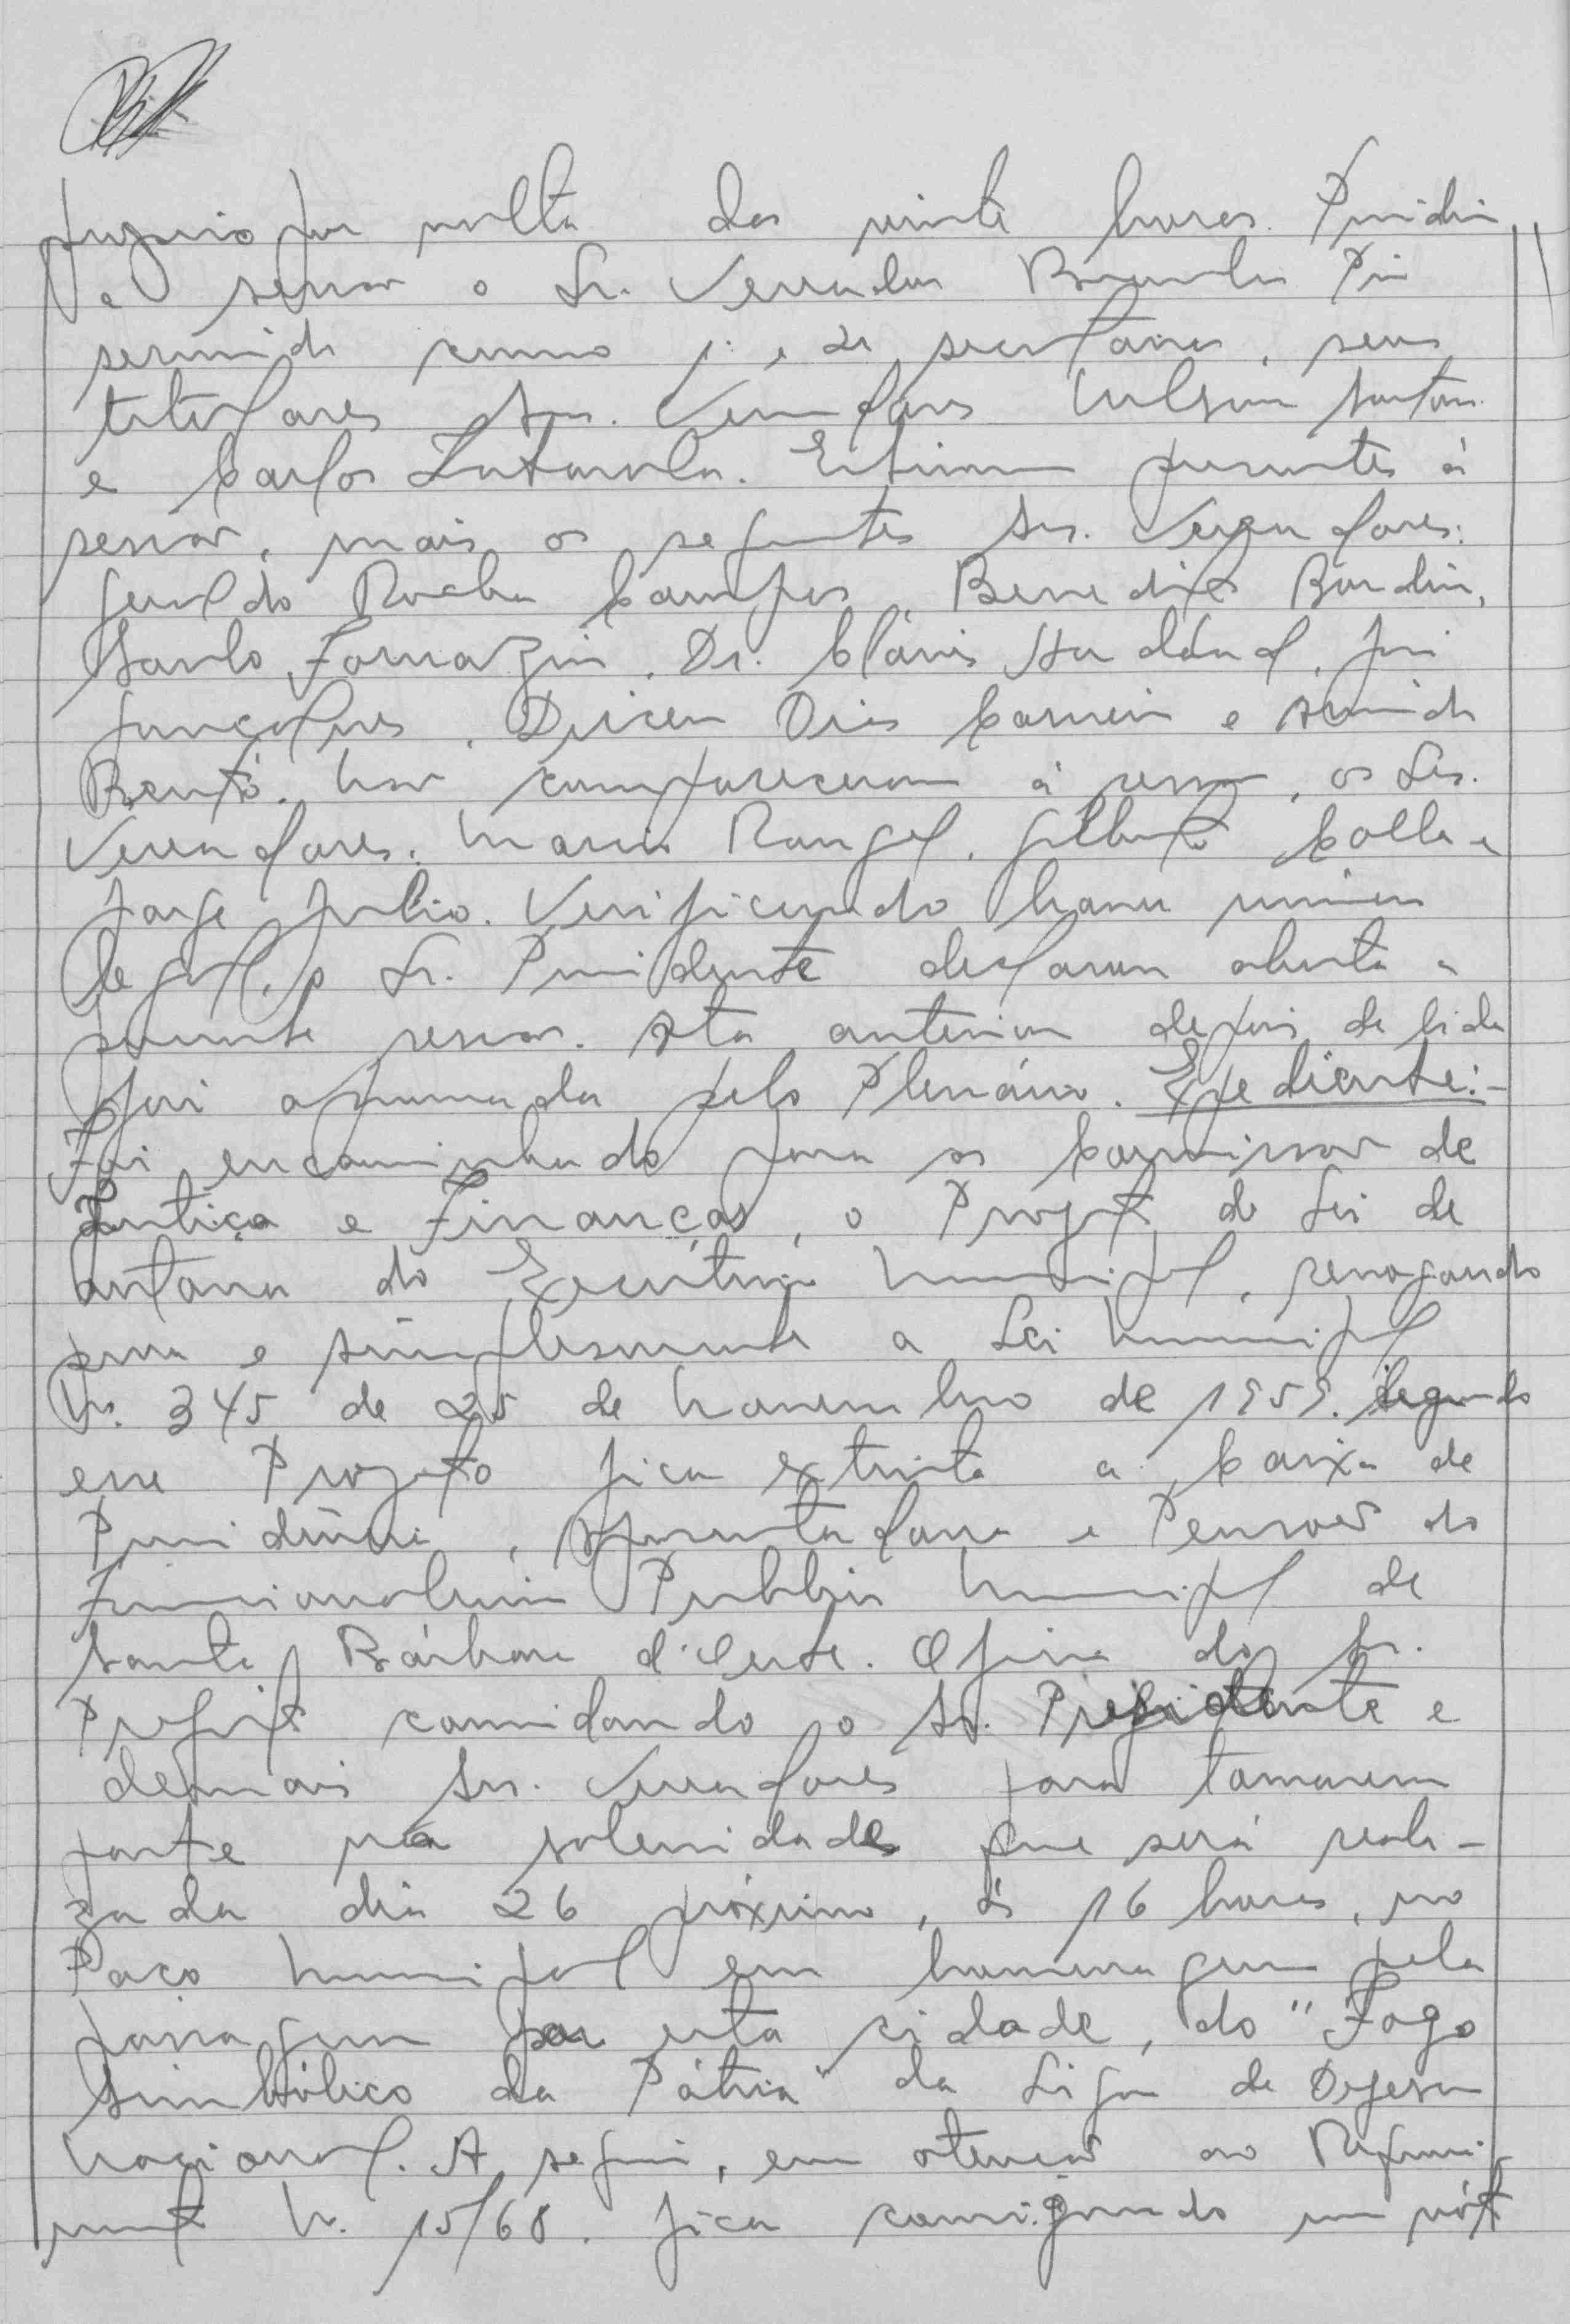 por volta das vinte horas. Presidiu
a sessão o Sr. Vereador Braulio Pio
servindo como 1º e 2º secretarios, seus
titulares Srs. Vereadores Nelson
e Carlos Estiveram presentes à
sessão, mais os seguintes Srs. Vereadores:
Geraldo Rocha Campos, Benedito Bordin,
Fornazin, Dr. Clóvis José
Gonçalves, Dirceu Dias Carneiro e Arnaldo
Bento. Não compareceram à sessão, os Srs.
Vereadores: Mario Rangel, Gilberto Colla e
Jorge Julio. Verificando haver número
legal, o Sr. Presidente declarou aberta a
presente sessão. Ata anterior depois de lida
foi aprovada pelo Plenário. Expediente:-
Foi encaminhado para as Comissões de
Justiça e Finanças, o Projeto de Lei de
autoria do Executivo Municipal, revogando
pura e simplesmente a Lei Municipal
Nº. 345 de 25 de Novembro de 1959. Segundo
esse Projeto fica extinta a Caixa de
Previdência, Aposentadoria e Pensões do
Funcionalismo Publico Municipal de
Santa Bárbara d'Oeste. Oficio do Sr.
Prefeito convidando o Sr. Presidente e
demais Srs. Vereadores para tomarem
parte na solenidade que será reali-
zada dia 26 próximo, às 16 horas, no
Paço Municipal em homenagem pela
passagem por esta cidade, do "Fogo
Simbólico da Pátria" da Liga de Defesa
Nacional. A seguir, em atenção ao Requeri
mento N. 15/68. fica consignado um vóto